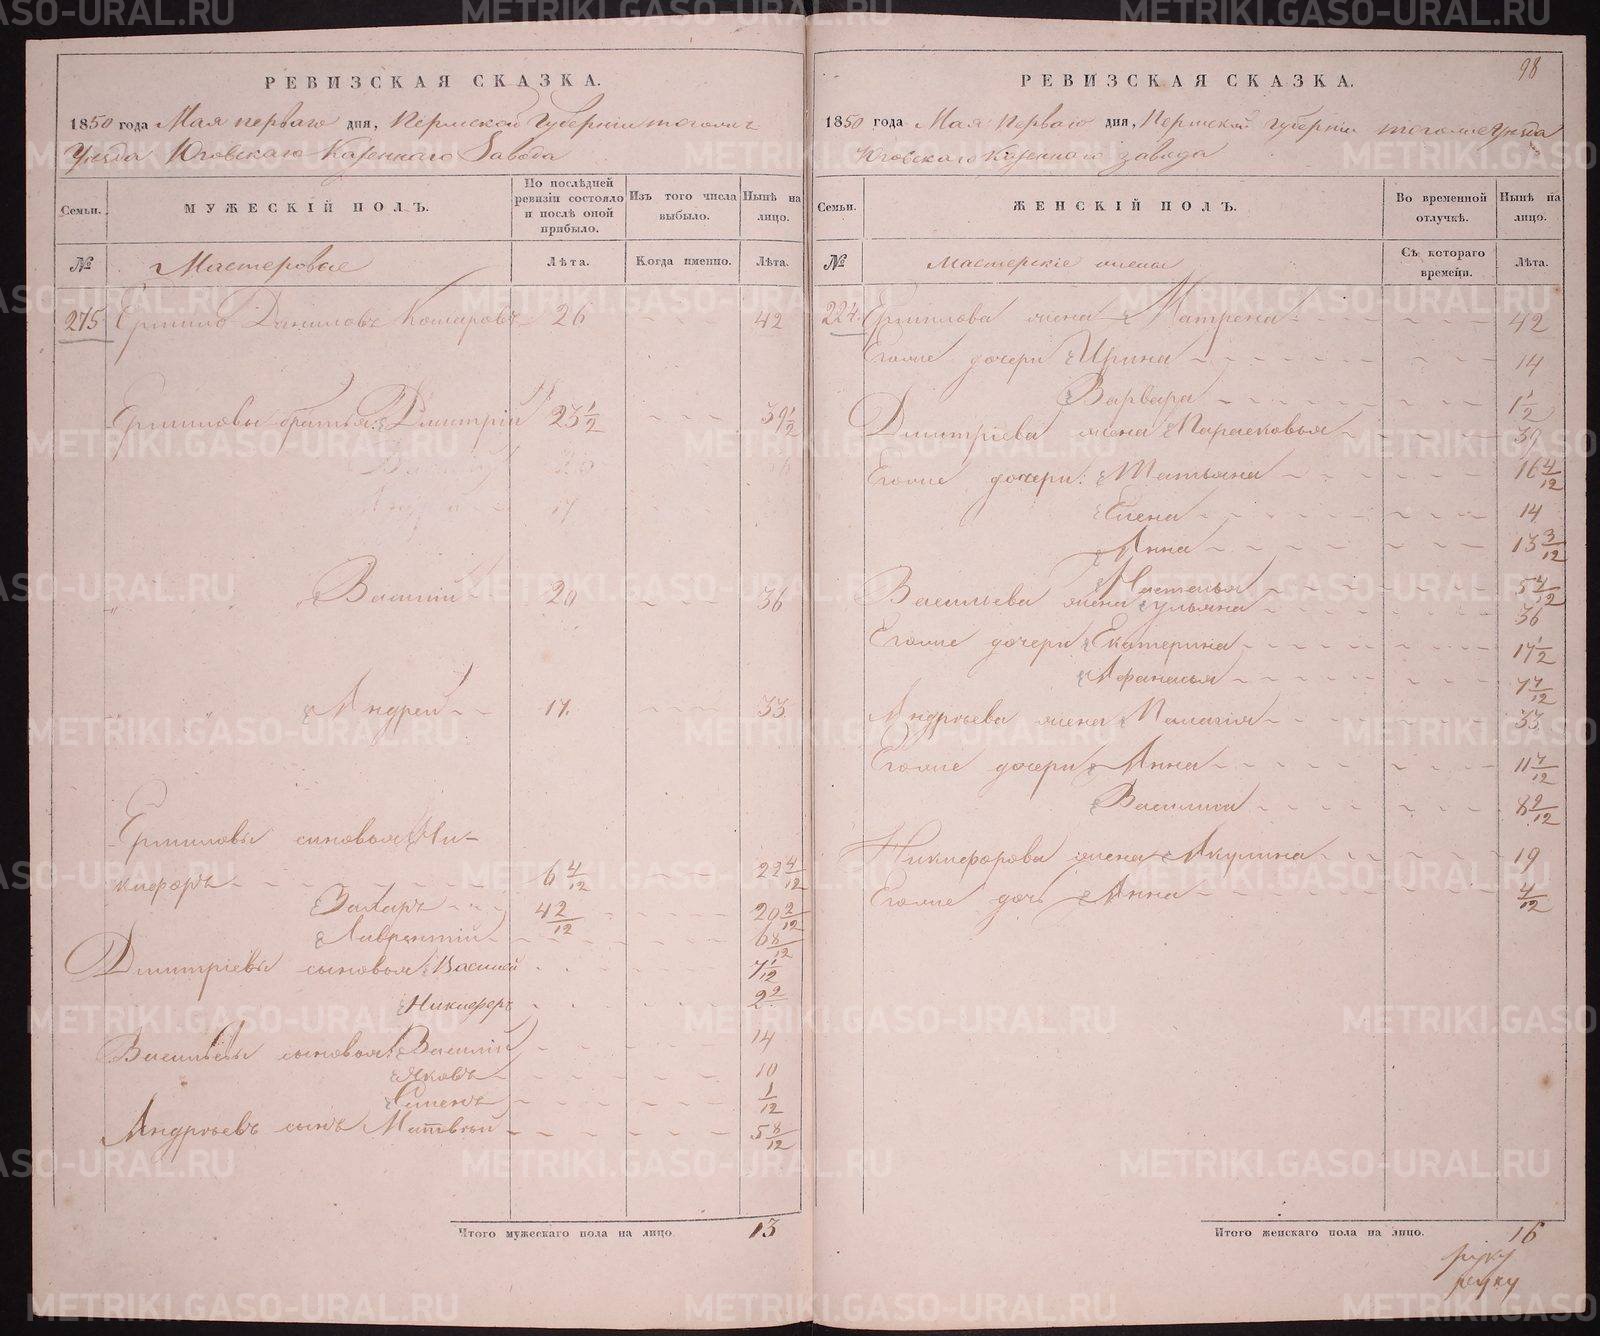 РЕВИЗСКАЯ СКАЗКА.
1850 года Мая перваго дня, Пермской Губернiи тогожъ
Уезда Юговскаго Казеннаго Завода
Семьи. МУЖЕСКIЙ ПОЛЪ. По послѣдней ревизiи состояло и послѣ оной прибыло. Изъ того числа выбыло. Нынѣ на лицо.
№ Мастеровые Лѣта. Когда именно. Лѣта.
275 Ермило Даниловъ Комаровъ 26 42
Ермиловы братья: Дмитрiй 23 1/2 39 1/2
Василiй 20 36
Андрей 17
" " Василiй 20 36
" " Андрей 17. 33
Ермиловы сыновья Ни-
кифоръ 6 4/12 22 4/12
Захаръ 4 2/12 20 2/12
Лаврентiй 6 8/12
Дмитрiевы сыновья Василiй 7 1/12
Никифоръ 2 2/
Васильевы сыновья: Василiй 14
Яковъ 10
Семенъ 1/12
Андреевъ сынъ Матвей 5 8/12
Итого мужескаго пола на лицо. 13
98
РЕВИЗСКАЯ СКАЗКА.
1850 года Мая Перваго дня, Пермской Губернiи тогоже Уезда
Юговскаго Казеннаго завода
Семьи. ЖЕНСКIЙ ПОЛЪ. Во временной отлучкѣ. Нынѣ на лицо.
№ Мастерскiе жены Съ котораго времени. Лѣта.
224. Ермилова жена Матрена 42
Егоже дочери Ирина 14
Варвара 1 1/2
Дмитрiева жена Парасковья 39
Егоже дочери: Татьяна 16 4/12
Елена 14
Анна 13 3/12
Настасья 5 4/12
Васильева жена Ульяна 36
Егоже дочери Екатерина 17 1/2
Афанасья 7 7/12
Андреева жена Палагiя 33
Егоже дочери Анна 11 7/12
Василиса 8 9/12
Никифорова жена Акулина 19
Егоже дочь Анна 4/12
Итого женскаго пола на лицо. 16
руку
руку
METRIKI.GASO-URAL.RU